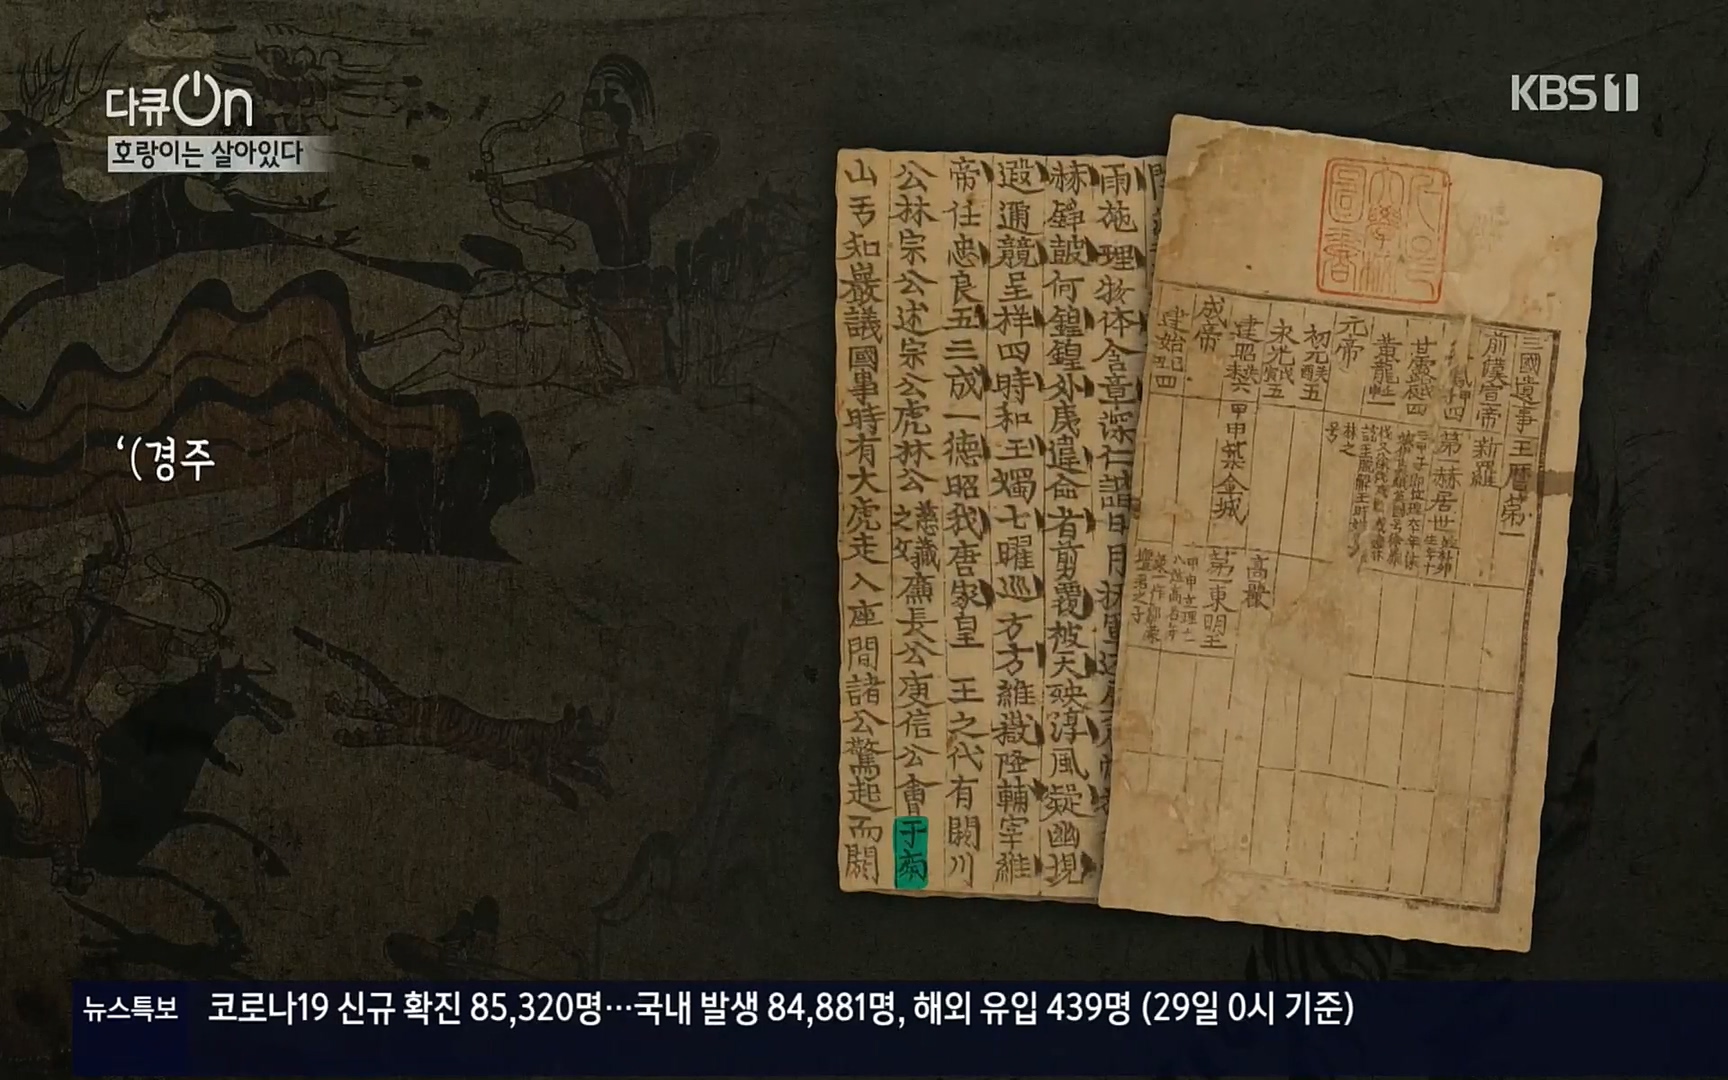 다큐On
호랑이는 살아있다
KBS1
‘(경주
三國遺事王曆第一
前漢宣帝 新羅
第一赫居世
元帝
建昭 甲申築金城 高麗
成帝 第一東明王
雨施理物体含章深仁諧日月
赫錚皷何鍠鍠外夷違命者剪覆被天殃淳風凝幽現
遐邇競呈祥四時和玉燭七曜巡方方維嶽降輔宰維
帝任忠良五三成一德昭我唐家皇 王之代有閼川
公林宗公述宗公虎林公慈藏之父廉長公庾信公會于南
山亐知巖議國事時有大虎走入座間諸公驚起而閼
뉴스특보 코로나19 신규 확진 85,320명…국내 발생 84,881명, 해외 유입 439명 (29일 0시 기준)